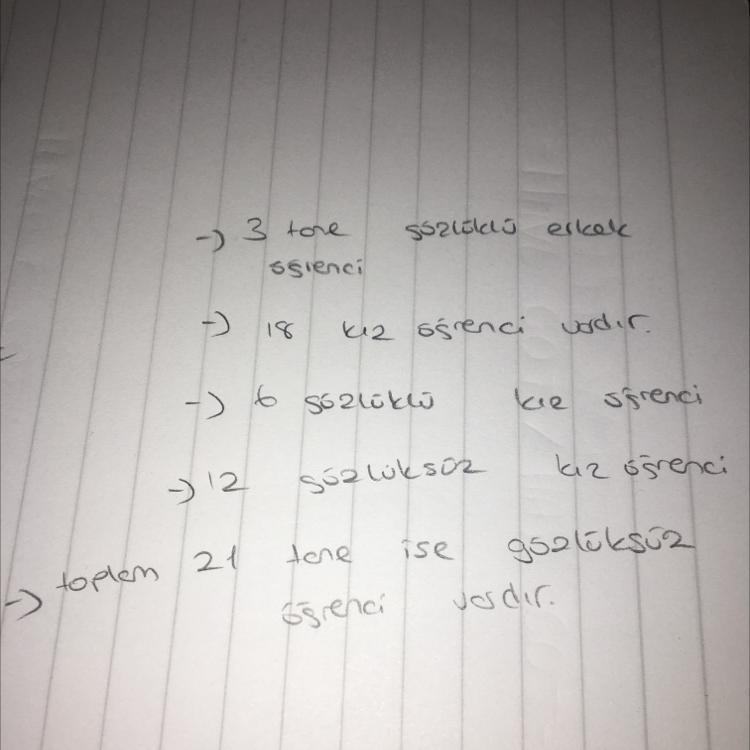 -) 3 tane gözlüklü erkek
öğrenci
-) 18 kız öğrenci vardır.
-) 6 gözlüklü kız öğrenci
-) 12 gözlüksüz kız öğrenci
-) toplam 21 tane ise gözlüksüz
öğrenci vardır.